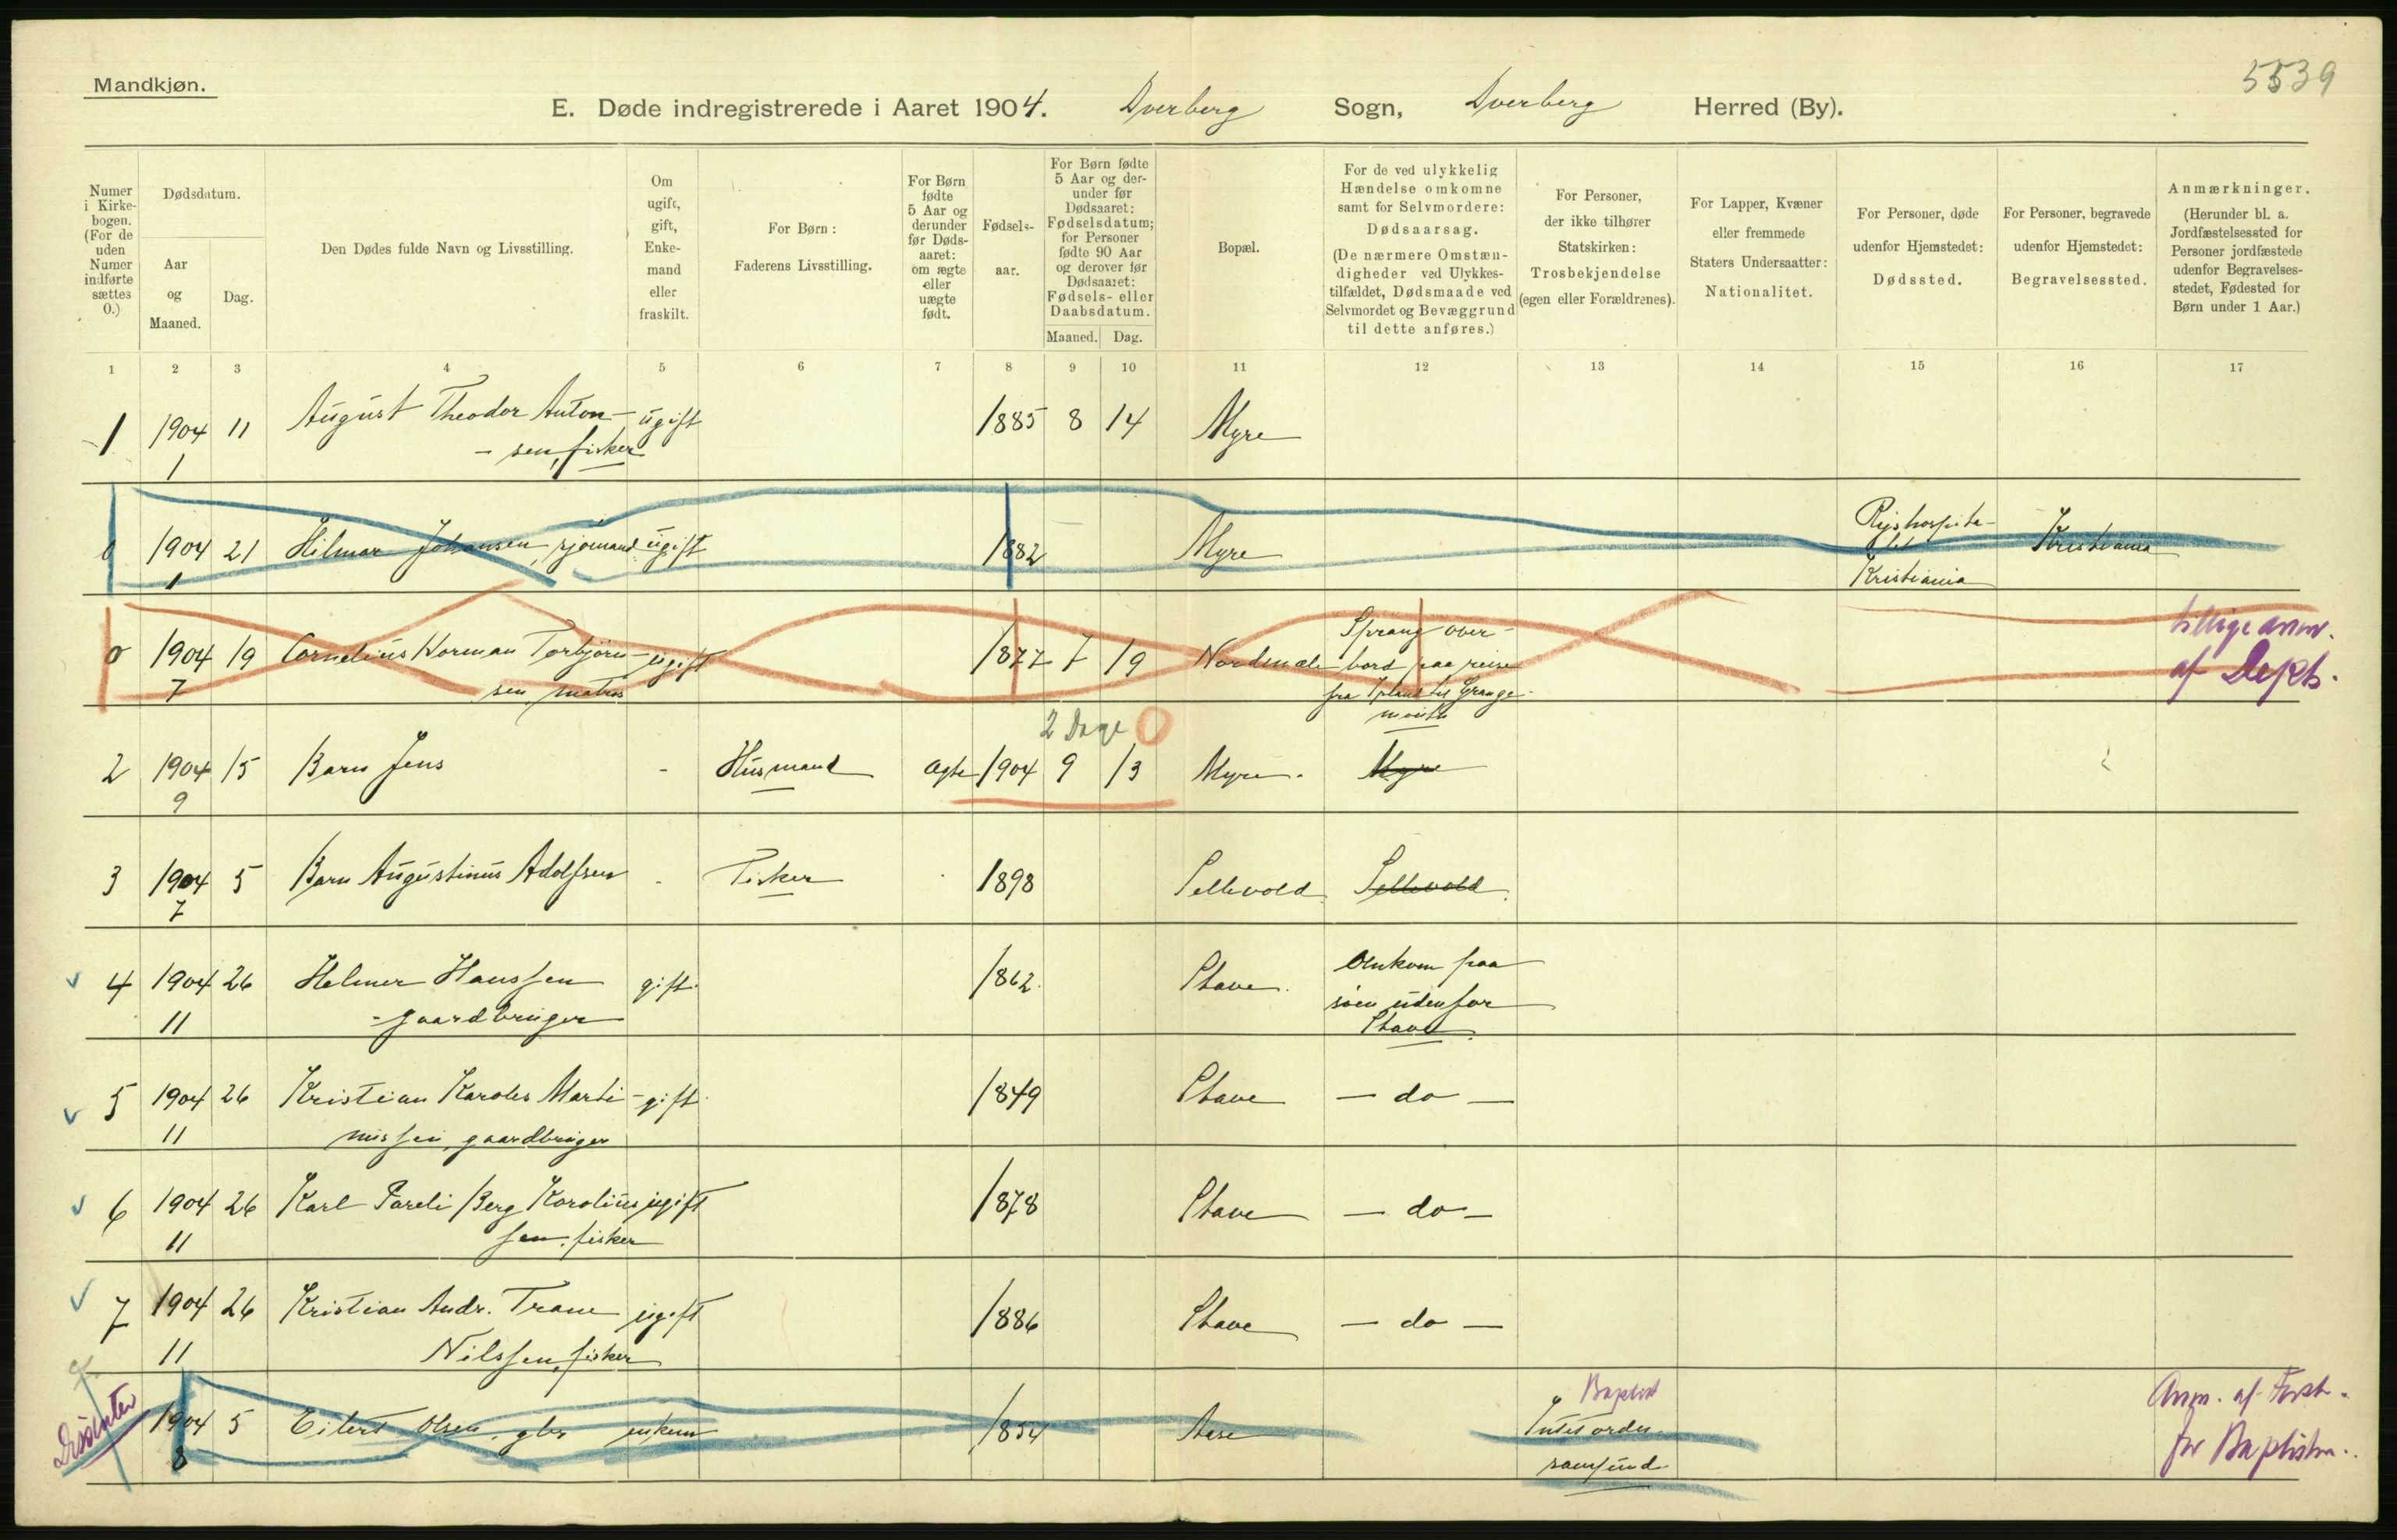 Mandkjøn.
5539
E. Døde indregistrerede i Aaret 1904. Dverberg Sogn, Dverberg Herred (By).
Numer i Kirkebogen. (For de uden Numer indførte sættes 0.)
Dødsdatum.
Aar og Maaned.
Dag.
Den Dødes fulde Navn og Livsstilling.
Om ugift, gift, Enkemand eller fraskilt.
For Børn:
Faderens Livsstilling.
For Børn fødte 5 Aar og derunder før Dødsaaret: om ægte eller uægte født.
Fødselsaar.
For Børn fødte 5 Aar og derunder før Dødsaaret: Fødselsdatum; for Personer fødte 90 Aar og derover før Dødsaaret: Fødsels- eller Daabsdatum.
Maaned. Dag.
Bopæl.
For de ved ulykkelig Hændelse omkomne samt for Selvmordere: Dødsaarsag.
(De nærmere Omstændigheder ved Ulykkestilfældet, Dødsmaade ved Selvmordet og Bevæggrund til dette anføres.)
For Personer, der ikke tilhører Statskirken: Trosbekjendelse (egen eller Forældrenes).
For Lapper, Kvæner eller fremmede Staters Undersaatter: Nationalitet.
For Personer, døde udenfor Hjemstedet: Dødssted.
For Personer, begravede udenfor Hjemstedet: Begravelsessted.
Anmærkninger.
(Herunder bl. a. Jordfæstelsessted for Personer jordfæstede udenfor Begravelsesstedet, Fødested for Børn under 1 Aar.)
1 2 3 4 5 6 7 8 9 10 11 12 13 14 15 16 17
1 1904 11 August Theodor Anton- ugift 1885 8 14 Myre
1 - sen, fisker
0 1904 21 Hilmar Johansen, sjømand ugift 1882 Myre Rigshospitalet Kristiania Kristiania
1
0 1904 19 Cornelius Norman Torbjørn- ugift 1877 7 19 Nordmæle Sprang overbord paa reise
7 sen, matros fra til Grangemouth
tillige anm. af Depts.
2 Dage 0
2 1904 15 Barn Jens - Husmand Ægte 1904 9 13 Myre. Myre
9
3 1904 5 Barn Augustinus Adolfsen - Fisker 1898 Sellevold Sellevold.
7
4 1904 26 Helmer Hanssen gift 1862. Stave. Omkom paa
11 - gaardbruger søen udenfor Stave
5 1904 26 Kristian Karoles Marti- gift 1849 Stave — do —
11 nissen, gaardbruger
6 1904 26 Karl Pareli Berg Karolius ugift 1878 Stave — do —
11 sen, fisker
7 1904 26 Kristian Andr. Trane ugift 1886 Stave — do —
11 Nilssen, fisker
Dissenter
1904 5 Eilert Olsen, gbr enkem 1854 Aase Baptist
8 Intet ordn. samfund
Anm. af Forst. for Baptistm.